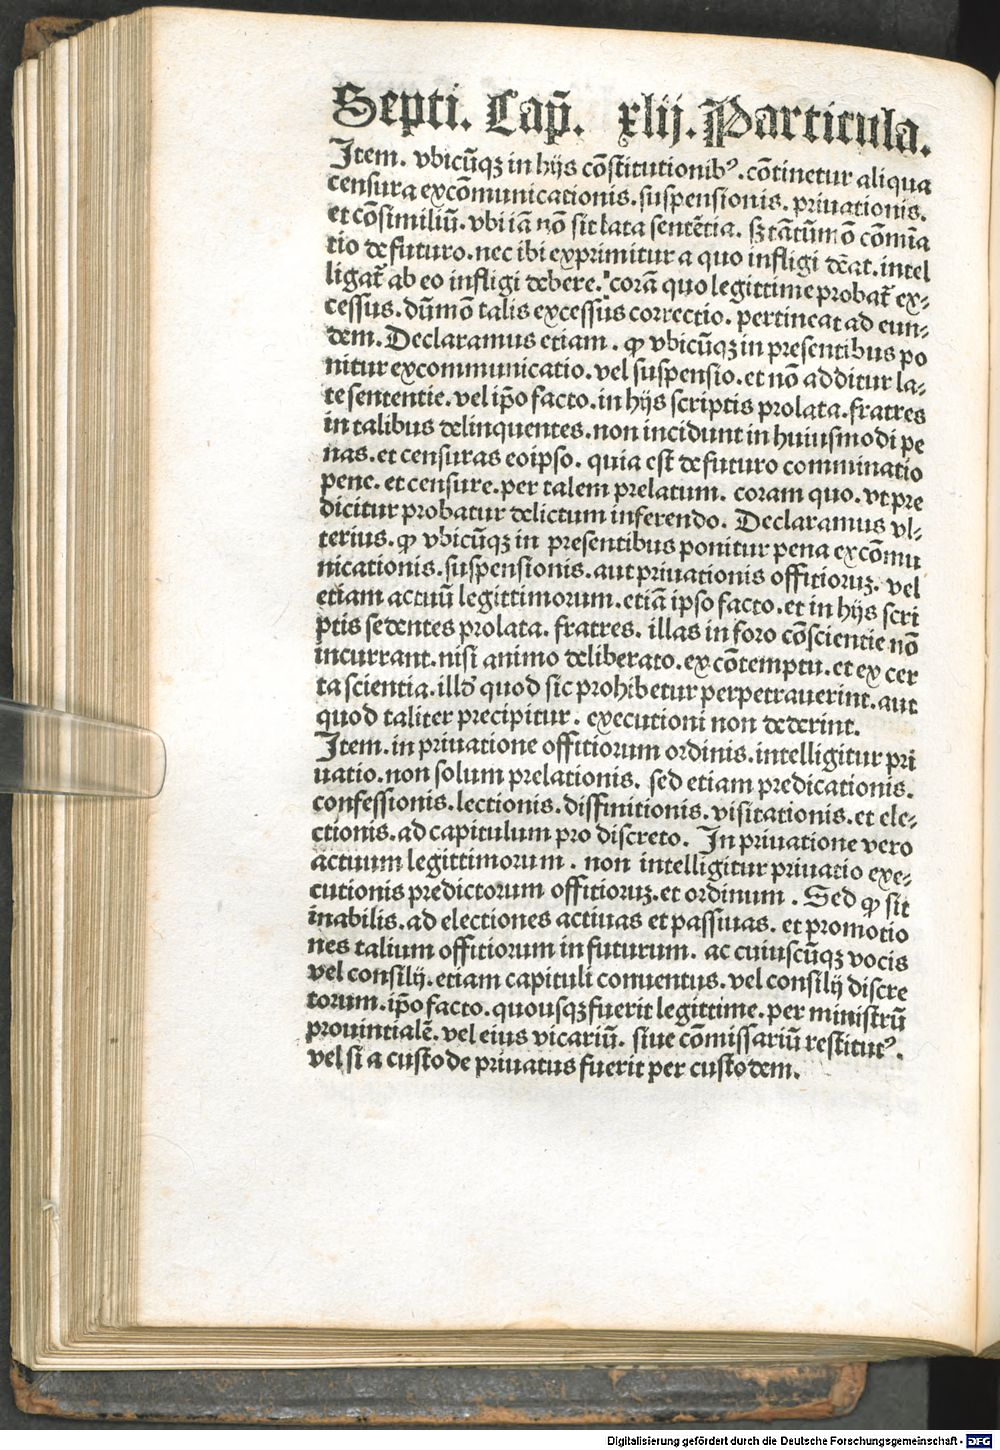 Septi. Cap̄. xlij. Particula.
Item. vbicūqꝫ in hijs cōstitutionibꝰ. cōtinetur aliqua
censura excōmunicationis. suspensionis. priuationis.
et cōsimiliū. vbi iā nō sit lata sentētia. sꝫ tātūmō cōmīa
tio de futuro. nec ibi exprimitur a quo infligi d̄eat. intel
ligat᷑ ab eo infligi debere. corā quo legittime probat᷑ ex⸗
cessus. dūmō talis excessus correctio. pertineat ad eun⸗
dem. Declaramus etiam. ꝙ vbicūqꝫ in presentibus po
nitur excommunicatio. vel suspensio. et nō additur la⸗
te sententie. vel ip̄o facto. in hijs scriptis prolata. fratres
in talibus delinquentes. non incidunt in huiusmodi pe
nas. et censuras eoipso. quia est de futuro comminatio
pene. et censure. per talem prelatum. coram quo. vt pre
dicitur probatur delictum inferendo. Declaramus vl⸗
terius. ꝙ vbicūqꝫ in presentibus ponitur pena excōmu
nicationis. suspensionis. aut priuationis offitioruꝫ. vel
etiam actuū legittimorum. etiā ipso facto. et in hijs scri
ptis sedentes prolata. fratres. illas in foro cōscientie nō
incurrant. nisi animo deliberato. ex cōtemptu. et ex cer
ta scientia. illd̓ quod sic prohibetur perpetrauerint. aut
quod taliter precipitur. executioni non dederint.
Item. in priuatione offitiorum ordinis. intelligitur pri
uatio. non solum prelationis. sed etiam predicationis.
confessionis. lectionis. diffinitionis. visitationis. et ele⸗
ctionis. ad capitulum pro discreto. In priuatione vero
actuum legittimorum. non intelligitur priuatio exe⸗
cutionis predictorum offitioruꝫ. et ordinum. Sed ꝙ sit
inabilis. ad electiones actiuas et passiuas. et promotio
nes talium offitiorum in futurum. ac cuiuscūqꝫ vocis
vel consilij. etiam capituli conuentus. vel consilij discre
torum. ip̄o facto. quousqꝫ fuerit legittime. per ministrū
prouintialē. vel eius vicariū. siue cōmissariū restitutꝰ.
vel si a custode priuatus fuerit per custodem.
Digitalisierung gefördert durch die Deutsche Forschungsgemeinschaft - DFG